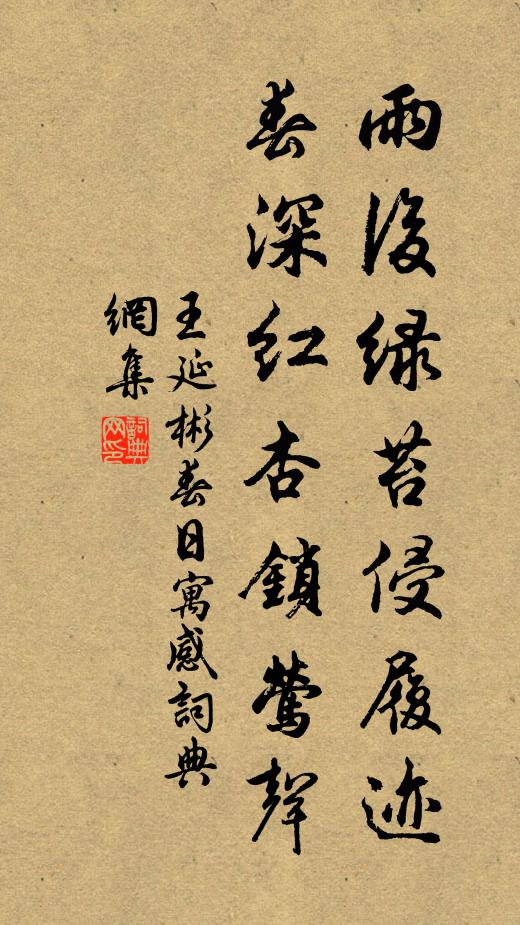 雨後緑苔侵履迹
春深紅杏鎖鶯聲
王延彬春日寓感詞典
網集
詞典
网印